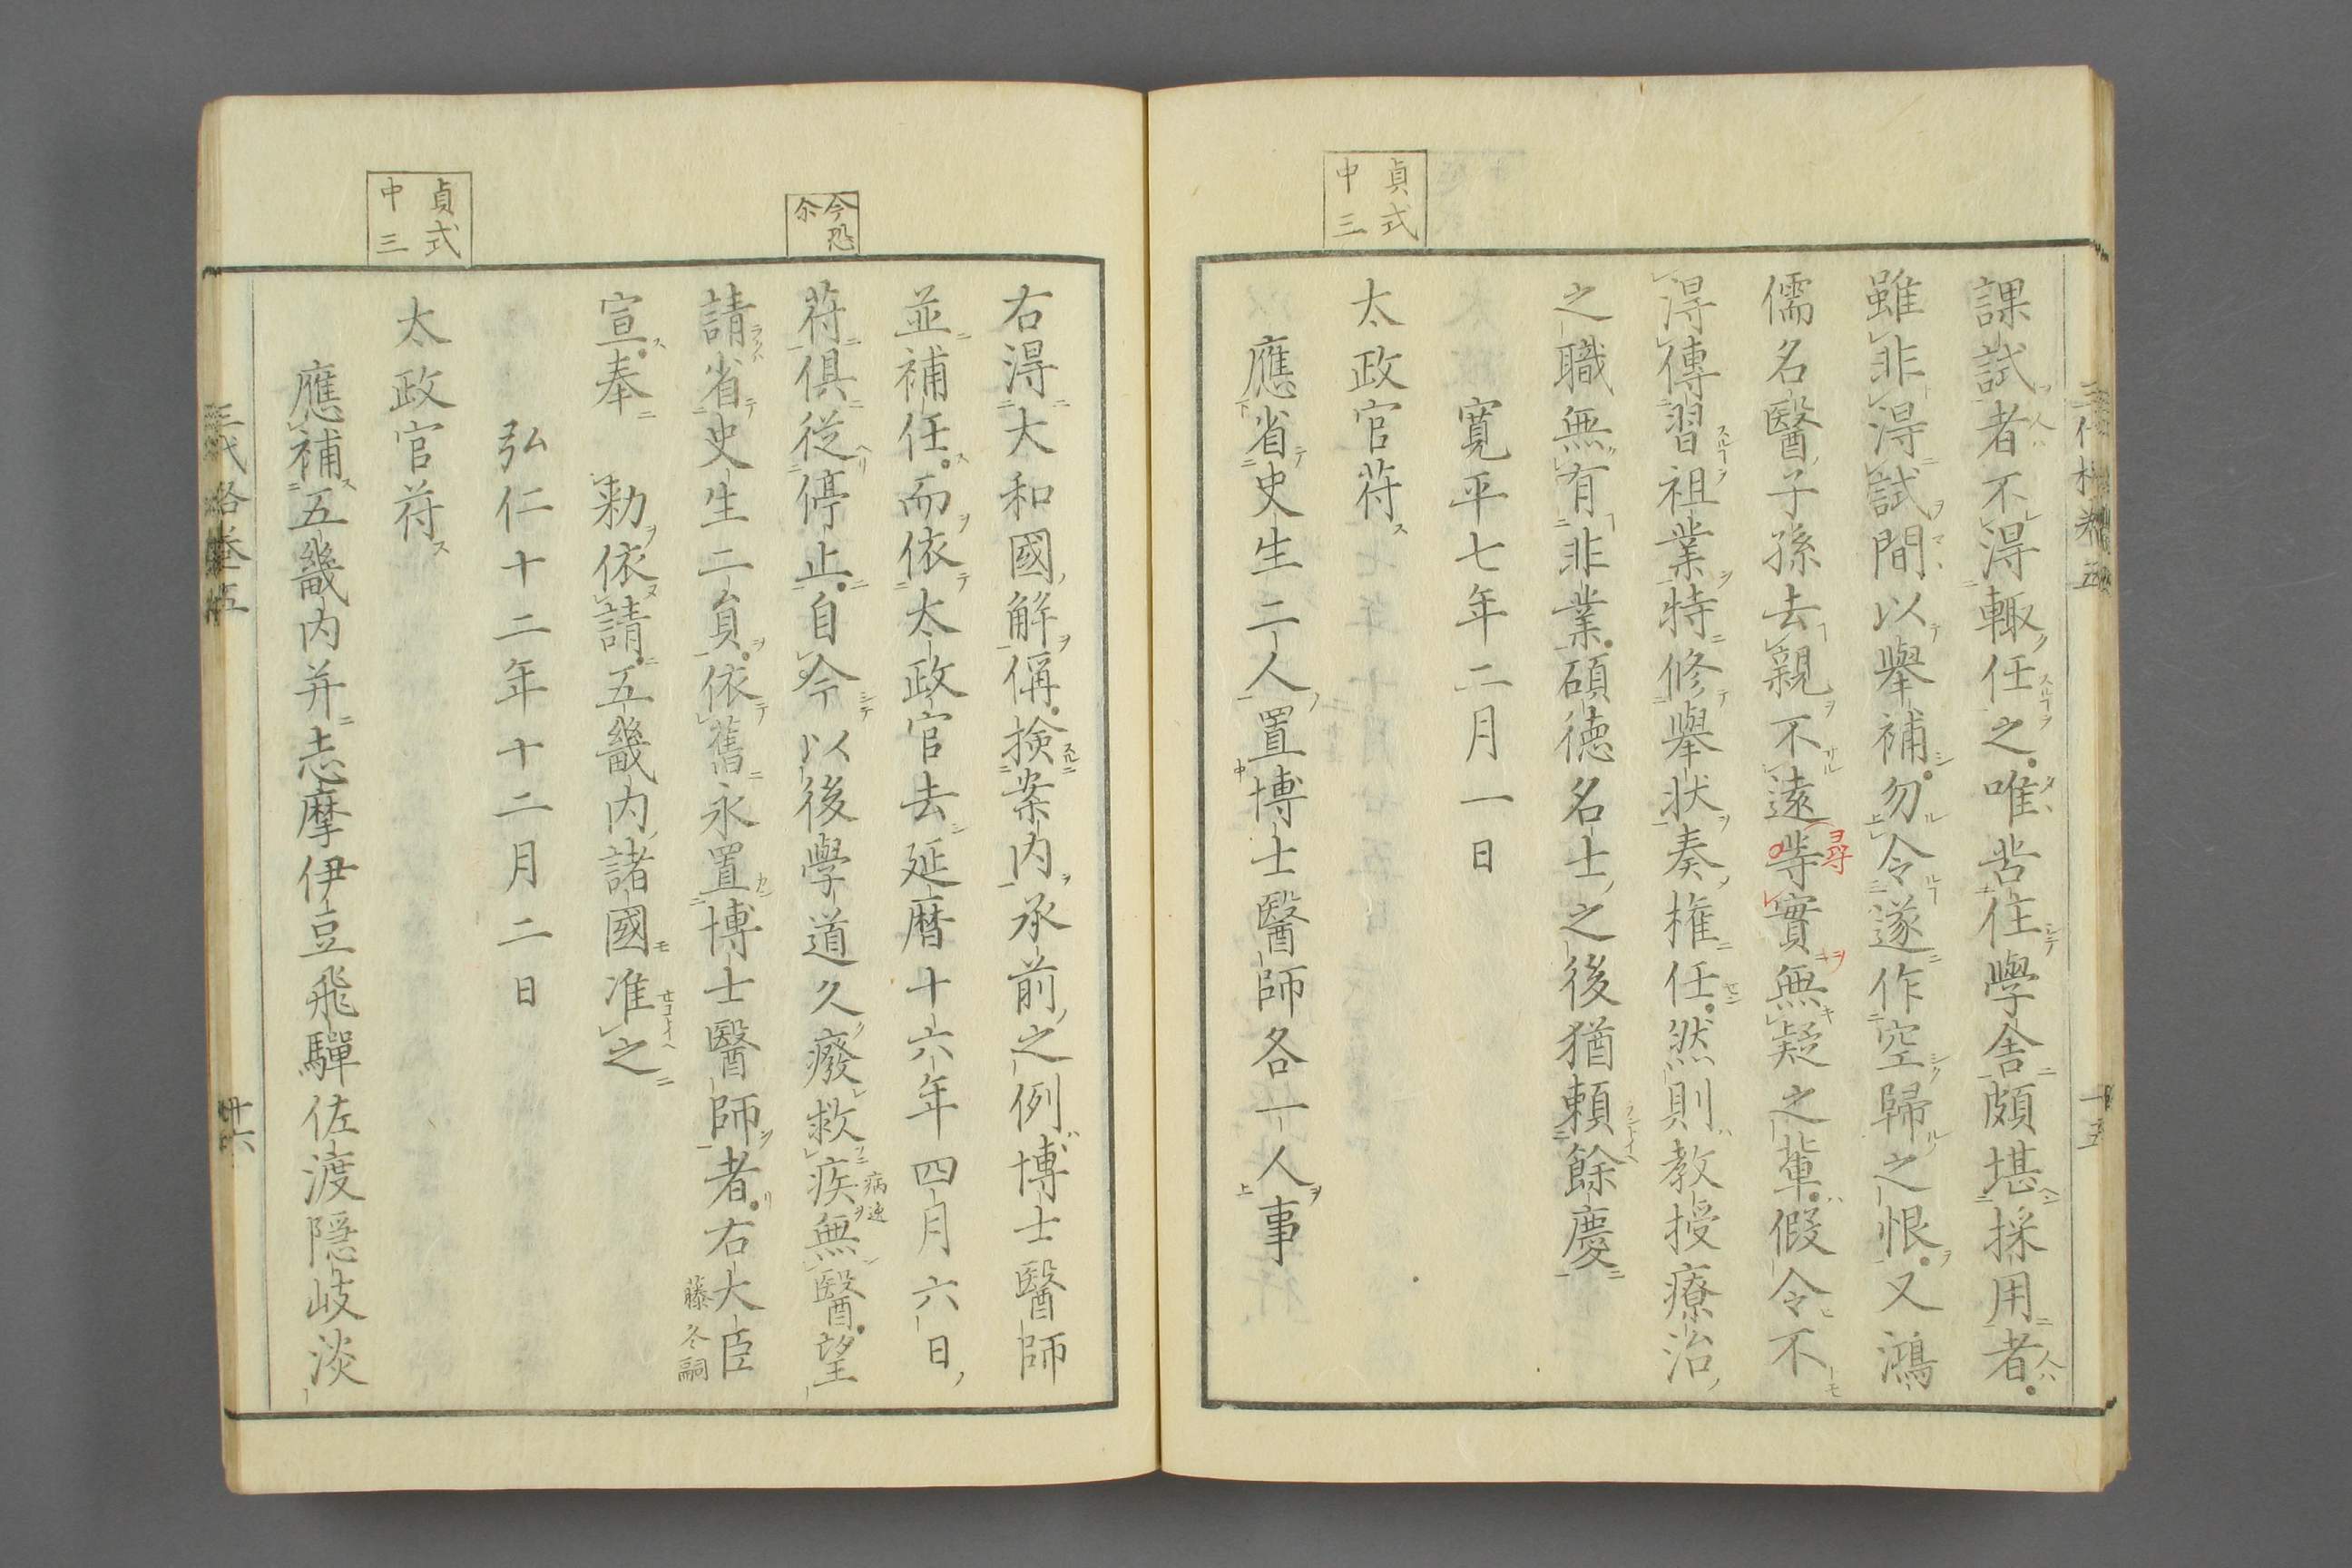 貞式
中三
課試者不得輙任之唯苦住學舎頗堪採用者
雖非得試間以擧補勿令遂作空歸之恨又鴻
儒名醫子孫去親不遠等實無疑之輩假令不
得傳習祖業特修擧状奏権任然則教授療治
之職無有非業碩德名士之後猶頼餘慶
寛平七年二月一日
太政官符
應省史生二人置博士醫師各一人事
右得大和國解偁撿案内承前之例博士醫師
並補任而依太政官去延暦十六年四月六日
今恐
尒
符俱從停止自今以後學道久癈救疾無醫望
病速
請省史生二負依舊永置博士醫師者右大臣
藤冬嗣
宣奉 勅依請五畿内諸國准之
弘仁十二年十二月二日
貞式
中三
太政官符
應補五畿内并志摩伊豆飛驒佐渡隠岐淡
三代格巻五
廿六